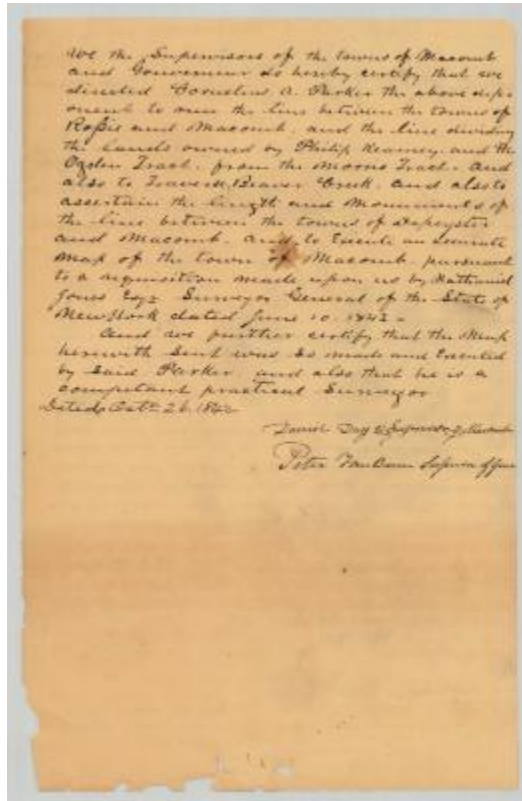 We the Supervisors of the towns of Macomb
and Gouverneur do hereby certify that we
directed Cornelius A. Parker the above depo-
nent to run the line between the towns of
Rossie and Macomb. and the line dividing
the lands owned by Philip Kearney. and the
Ogden Tract. from the Morris Tract. And
also to Traverse Beaver Creek. and also to
assertain the length and Monuments of
the line between the towns of Depeyster
and Macomb. and to Execute an accurate
Map of the town of Macomb. pursuant
to a requisition made upon us by Nathaniel
Jones Esqr Surveyor General of the State of
New York dated June 10. 1842 -
And we further certify that the Map
herewith Sent was So made and Executed
by Said Parker. and also that he is a
competant practical Surveyor
Dated Octr 26 1842
David Day Supervisor of Macomb
Peter Van Buren Supervisor of